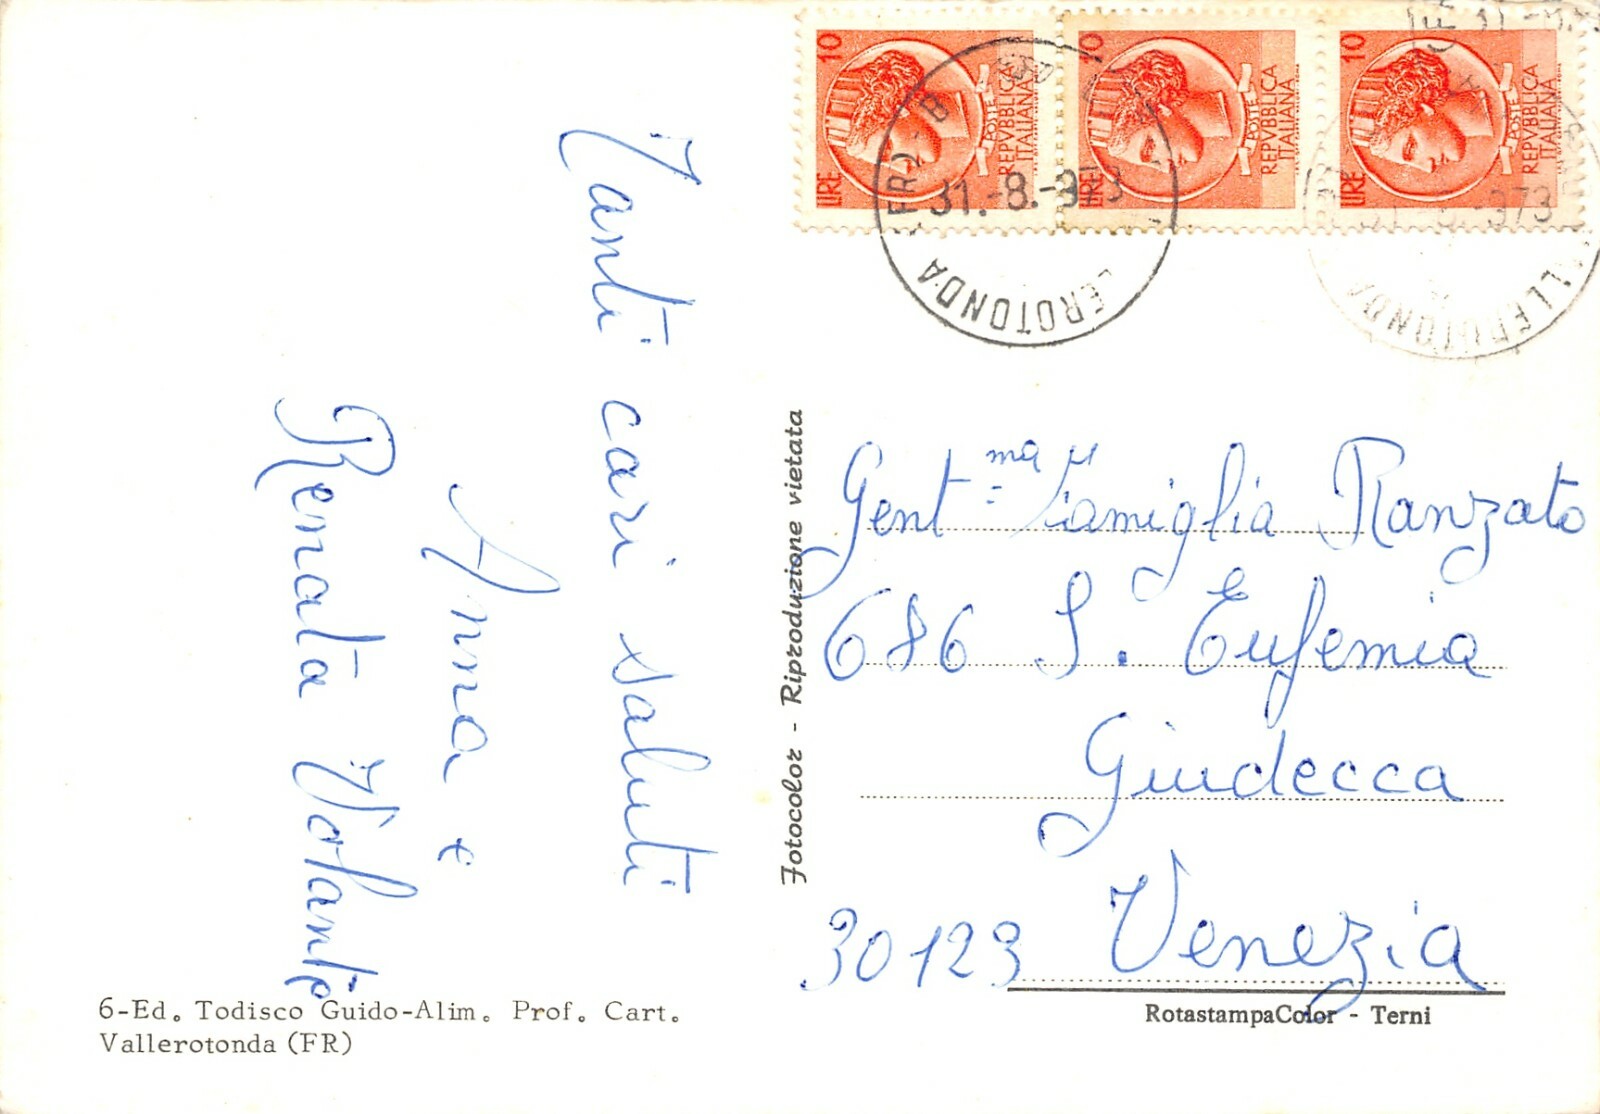 Tanti cari saluti
Anna e
Renata Volante
6-Ed. Todisco Guido-Alim. Prof. Cart.
Vallerotonda (FR)
Fotocolor - Riproduzione vietata
10 LIRE POSTE REPVBBLICA ITALIANA
10 LIRE POSTE REPVBBLICA ITALIANA
10 LIRE POSTE REPVBBLICA ITALIANA
31.-8.-973
(FR)-B
LEROTONDA
-973
LLEROTONDA
Gent.ma Famiglia Ranzato
686 S. Eufemia
Giudecca
30123 Venezia
RotastampaColor - Terni